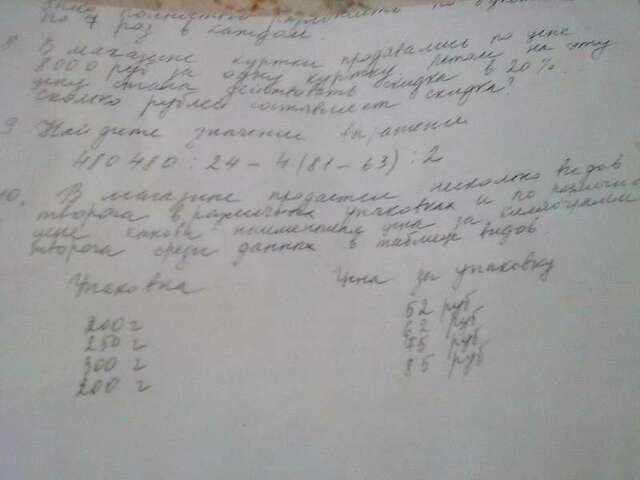 по 7 раз в каждом.
8 В магазине куртки продавались по цене
8000 руб за одну куртку. Летом на эту
цену стала действовать скидка в 20%.
Сколько рублей составляет скидка?
9 Найдите значение выражени
480480 : 24 - 4(81 - 63) : 2
10. В магазине продается несколько видов
творога в различных упаковках и по различно
цене какова наименьшая цена за килограмм
творога среди данных в таблице видов.
Упаковка Цена за упаковку
200 г 52 руб
250 г 62 руб
300 г 75 руб
200 г 85 руб